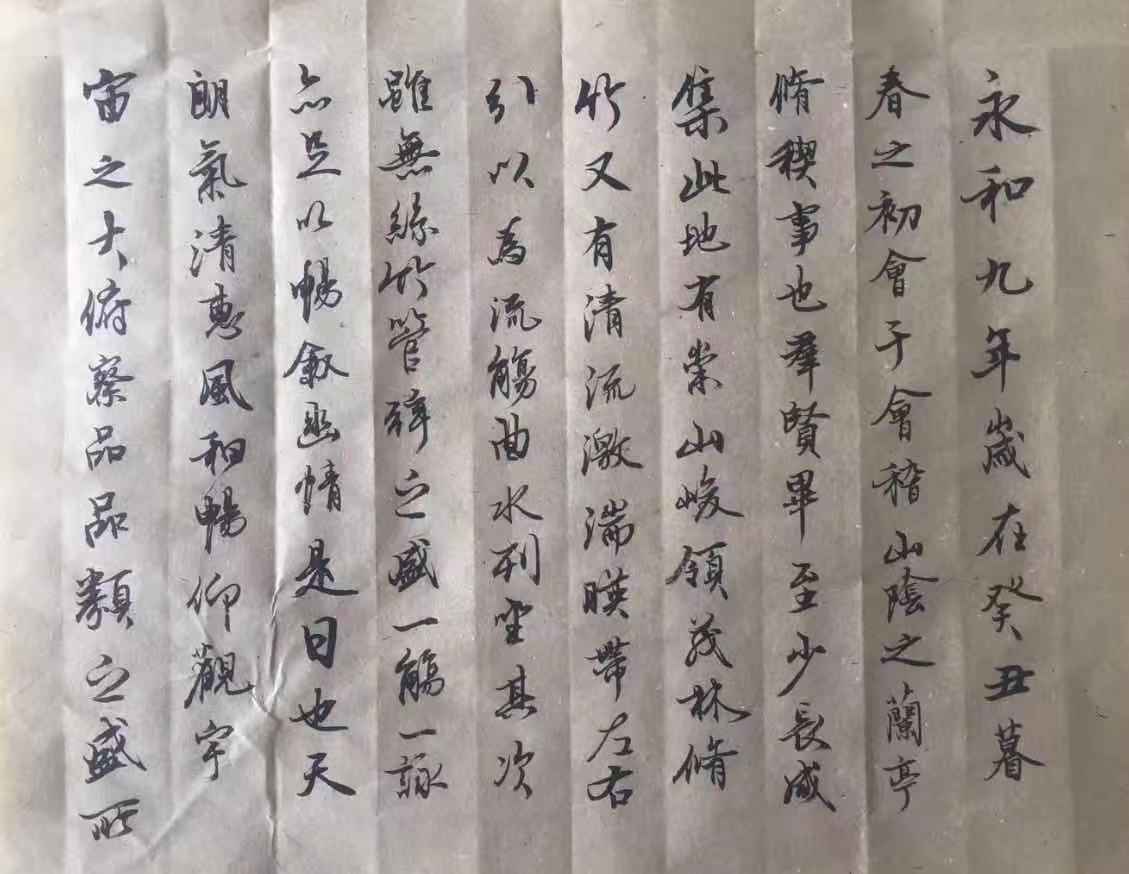 永和九年歲在癸丑暮
春之初會于會稽山陰之蘭亭
脩稧事也羣賢畢至少長咸
集此地有崇山峻領茂林脩
竹又有清流激湍暎帶左右
引以為流觴曲水列坐其次
雖無絲竹管弦之盛一觴一詠
亦足以暢敘幽情是日也天
朗氣清惠風和暢仰觀宇
宙之大俯察品品類之盛所